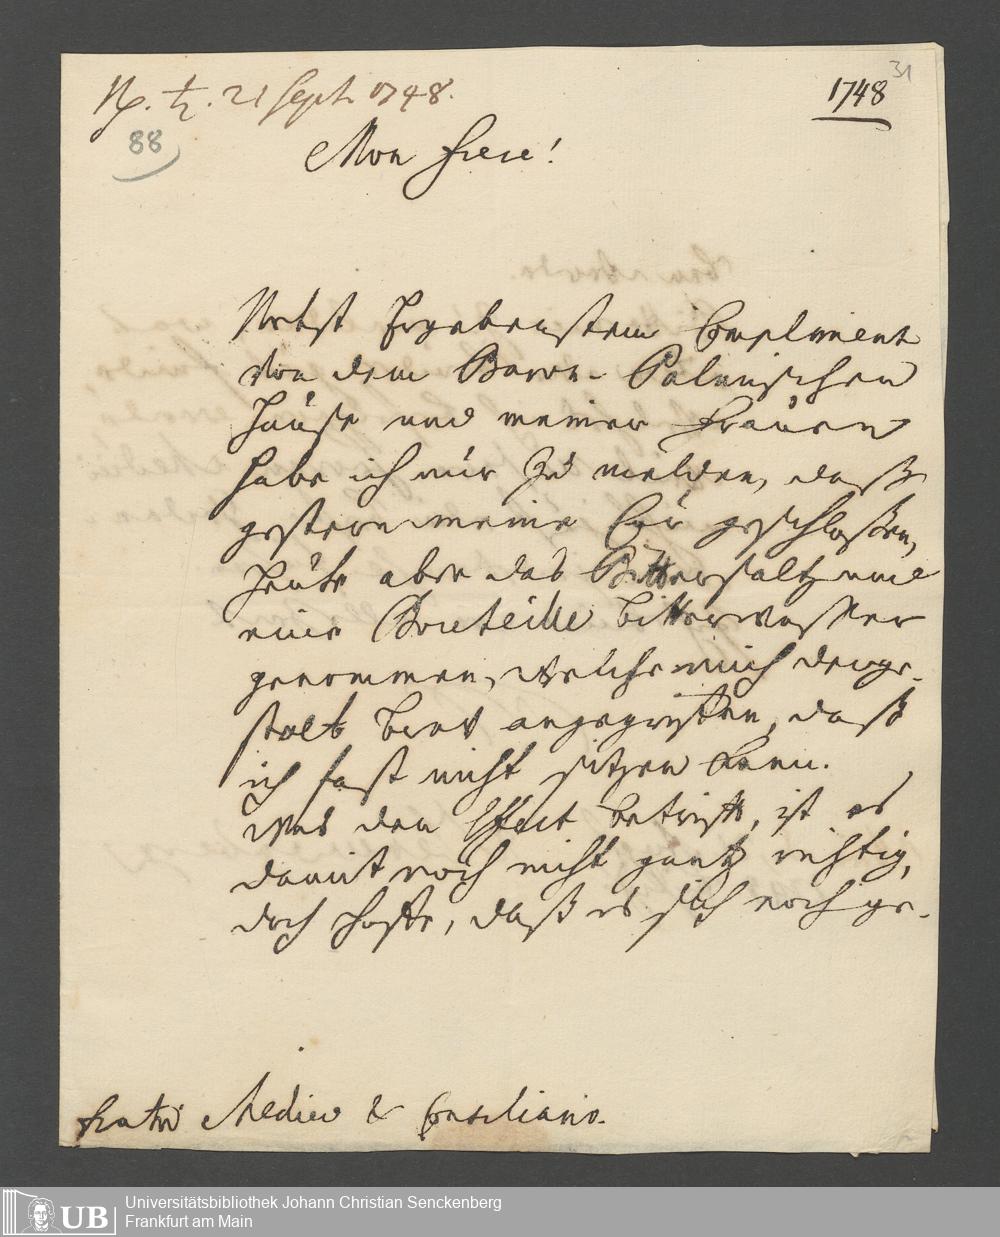 ♄. 21 Sept. 1748.
1748
31
88
Mon frere!
Nebst Ergebenstem Compliment
von dem Baron
Hause und meiner Frauen
habe ich nur zu melden, daß
gestern meine Cur geschlossen,
heute aber das Bittersaltz und
eine Bouteille bitterwasser
genommen, welche mich derge-
stalt angegriffen, daß
ich fast nicht sitzen kann.
Was den Effect betrifft, ist es
damit noch nicht gantz richtig,
doch hoffe, daß es sich noch ge-
fratri Medico & Consiliario.
UB
Universitätsbibliothek Johann Christian Senckenberg
Frankfurt am Main